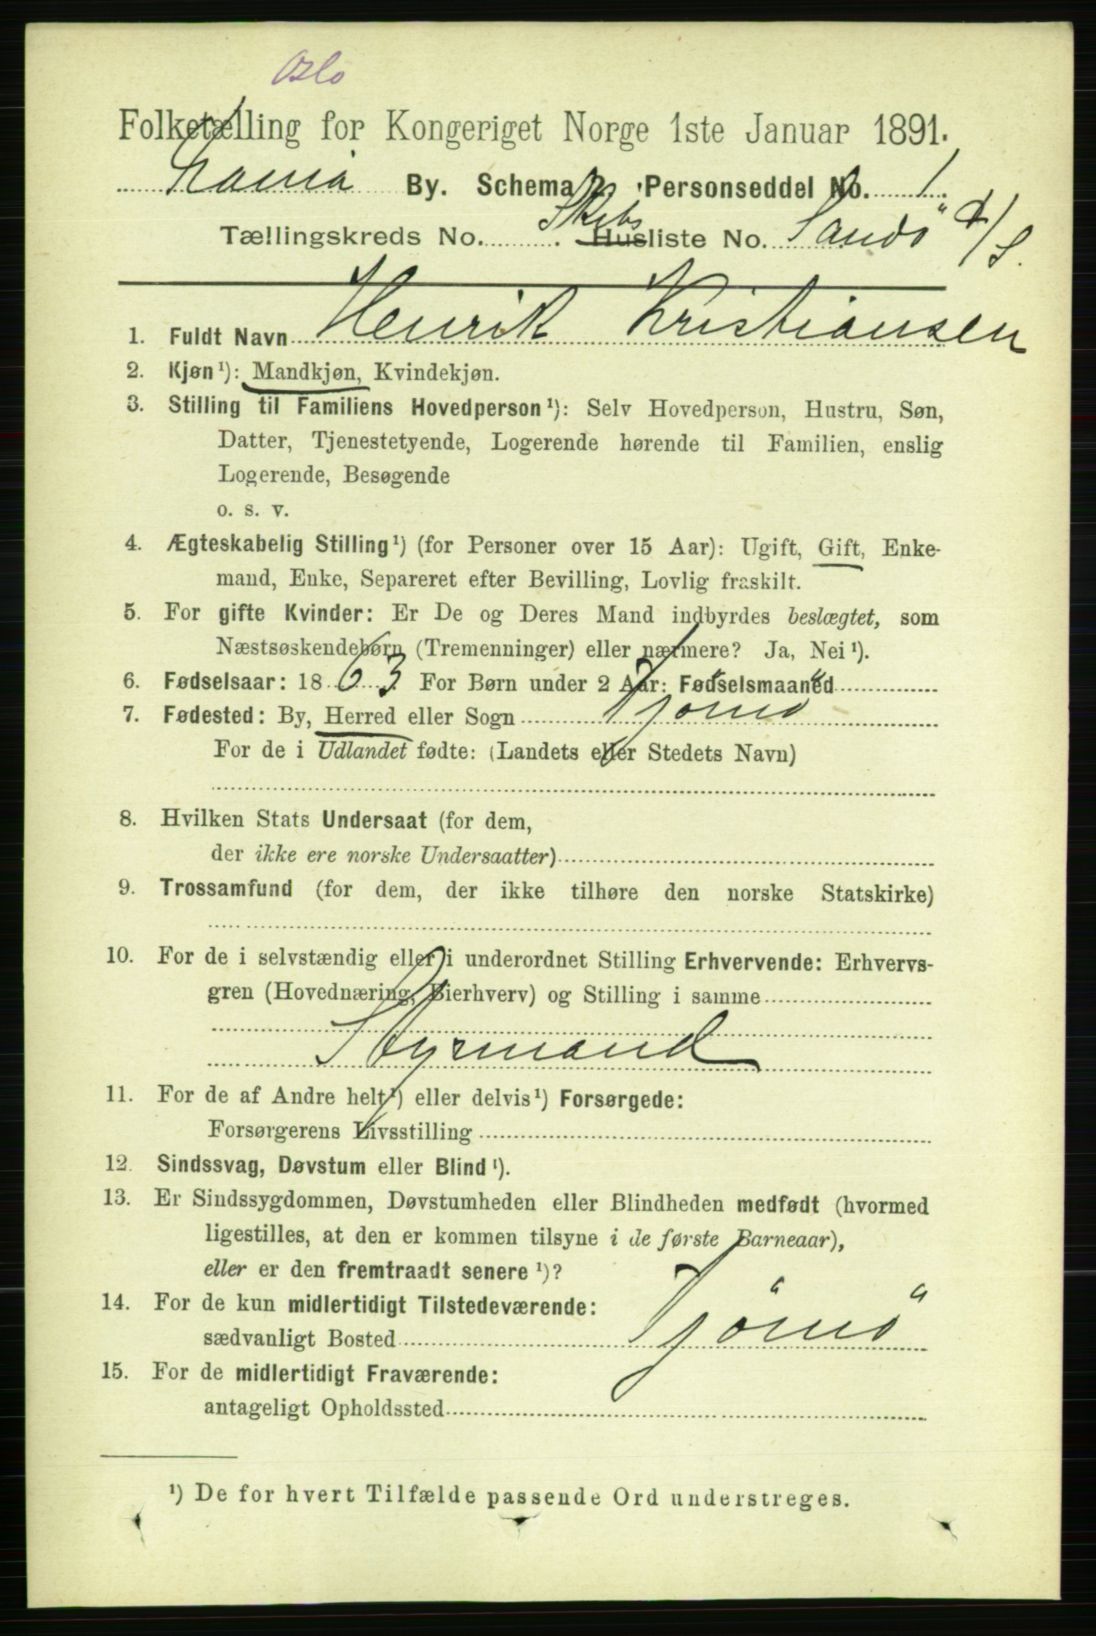 Oslo
Folketælling for Kongeriget Norge 1ste Januar 1891.
Krania By. Schema 2 Personseddel No. 1.
Tællingskreds No. ........ Skibs Husliste No. Sandö d/S.
1. Fuldt Navn Henrik Kristiansen
2. Kjøn ¹): Mandkjøn, Kvindekjøn.
3. Stilling til Familiens Hovedperson ¹): Selv Hovedperson, Hustru, Søn,
Datter, Tjenestetyende, Logerende hørende til Familien, enslig
Logerende, Besøgende
o. s. v.
4. Ægteskabelig Stilling ¹) (for Personer over 15 Aar): Ugift, Gift, Enke-
mand, Enke, Separeret efter Bevilling, Lovlig fraskilt.
5. For gifte Kvinder: Er De og Deres Mand indbyrdes beslægtet, som
Næstsøskendebørn (Tremenninger) eller nærmere? Ja, Nei ¹).
6. Fødselsaar: 1863. For Børn under 2 Aar: Fødselsmaaned
7. Fødested: By, Herred eller Sogn Tjömö
For de i Udlandet fødte: (Landets eller Stedets Navn)
8. Hvilken Stats Undersaat (for dem,
der ikke ere norske Undersaatter)
9. Trossamfund (for dem, der ikke tilhøre den norske Statskirke)
10. For de i selvstændig eller i underordnet Stilling Erhvervende: Erhvervs-
gren (Hovednæring, Bierhverv) og Stilling i samme
Styrmand
11. For de af Andre helt ¹) eller delvis ¹) Forsørgede:
Forsørgerens Livsstilling
12. Sindssvag, Døvstum eller Blind ¹).
13. Er Sindssygdommen, Døvstumheden eller Blindheden medfødt (hvormed
ligestilles, at den er kommen tilsyne i de første Barneaar),
eller er den fremtraadt senere ¹)?
14. For de kun midlertidigt Tilstedeværende:
sædvanligt Bosted Tjömö
15. For de midlertidigt Fraværende:
antageligt Opholdssted
¹) De for hvert Tilfælde passende Ord understreges.